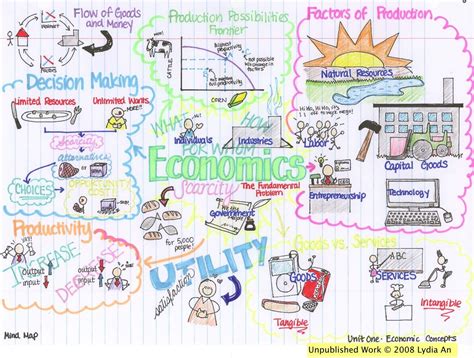 Flow of Goods
and Money
Production Possibilities
Frontier
CATTLE
CORN
Factors of Production
Natural Resources
Labor
Capital Goods
Entrepreneurship
Technology
Decision Making
Limited Resources
Unlimited Wants
Scarcity
alternatives
CHOICES
WHAT
HOW
FOR WHOM
Individuals
Industries
Economics
Scarcity
The Fundamental
Problem
We the
Government
Productivity
INCREASE
DECREASE
output
input
output
input
for 5,000
people?
UTILITY
satisfaction
Goods vs. Services
GOODS
Tangible
ABC
SERVICES
Intangible
Mind Map
Unit One - Economic Concepts
Unpublished Work © 2008 Lydia An